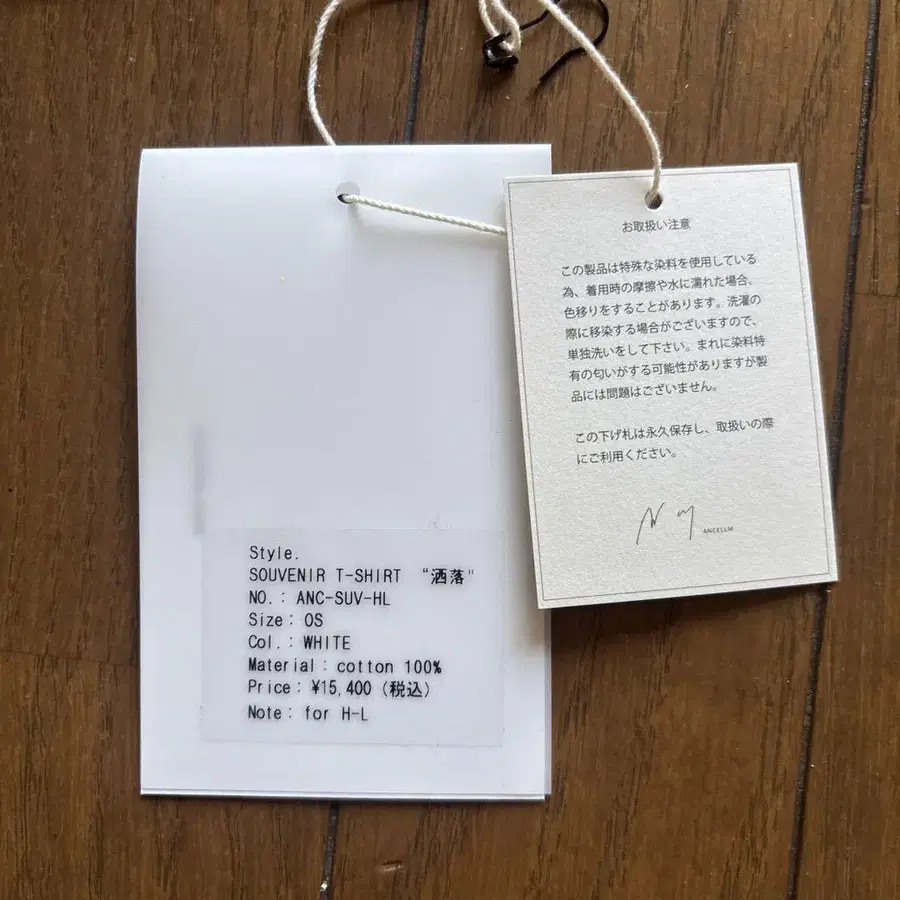 Style.
SOUVENIR T-SHIRT “洒落"
NO.: ANC-SUV-HL
Size: OS
Col.: WHITE
Material: cotton 100%
Price: ¥15,400 (税込)
Note: for H-L
お取扱い注意
この製品は特殊な染料を使用している
為、着用時の摩擦や水に濡れた場合、
色移りをすることがあります。洗濯の
際に移染する場合がございますので、
単独洗いをして下さい。まれに染料特
有の匂いがする可能性がありますが製
品には問題はございません。
この下げ札は永久保存し、取扱いの際
にご利用ください。
ANCELLM